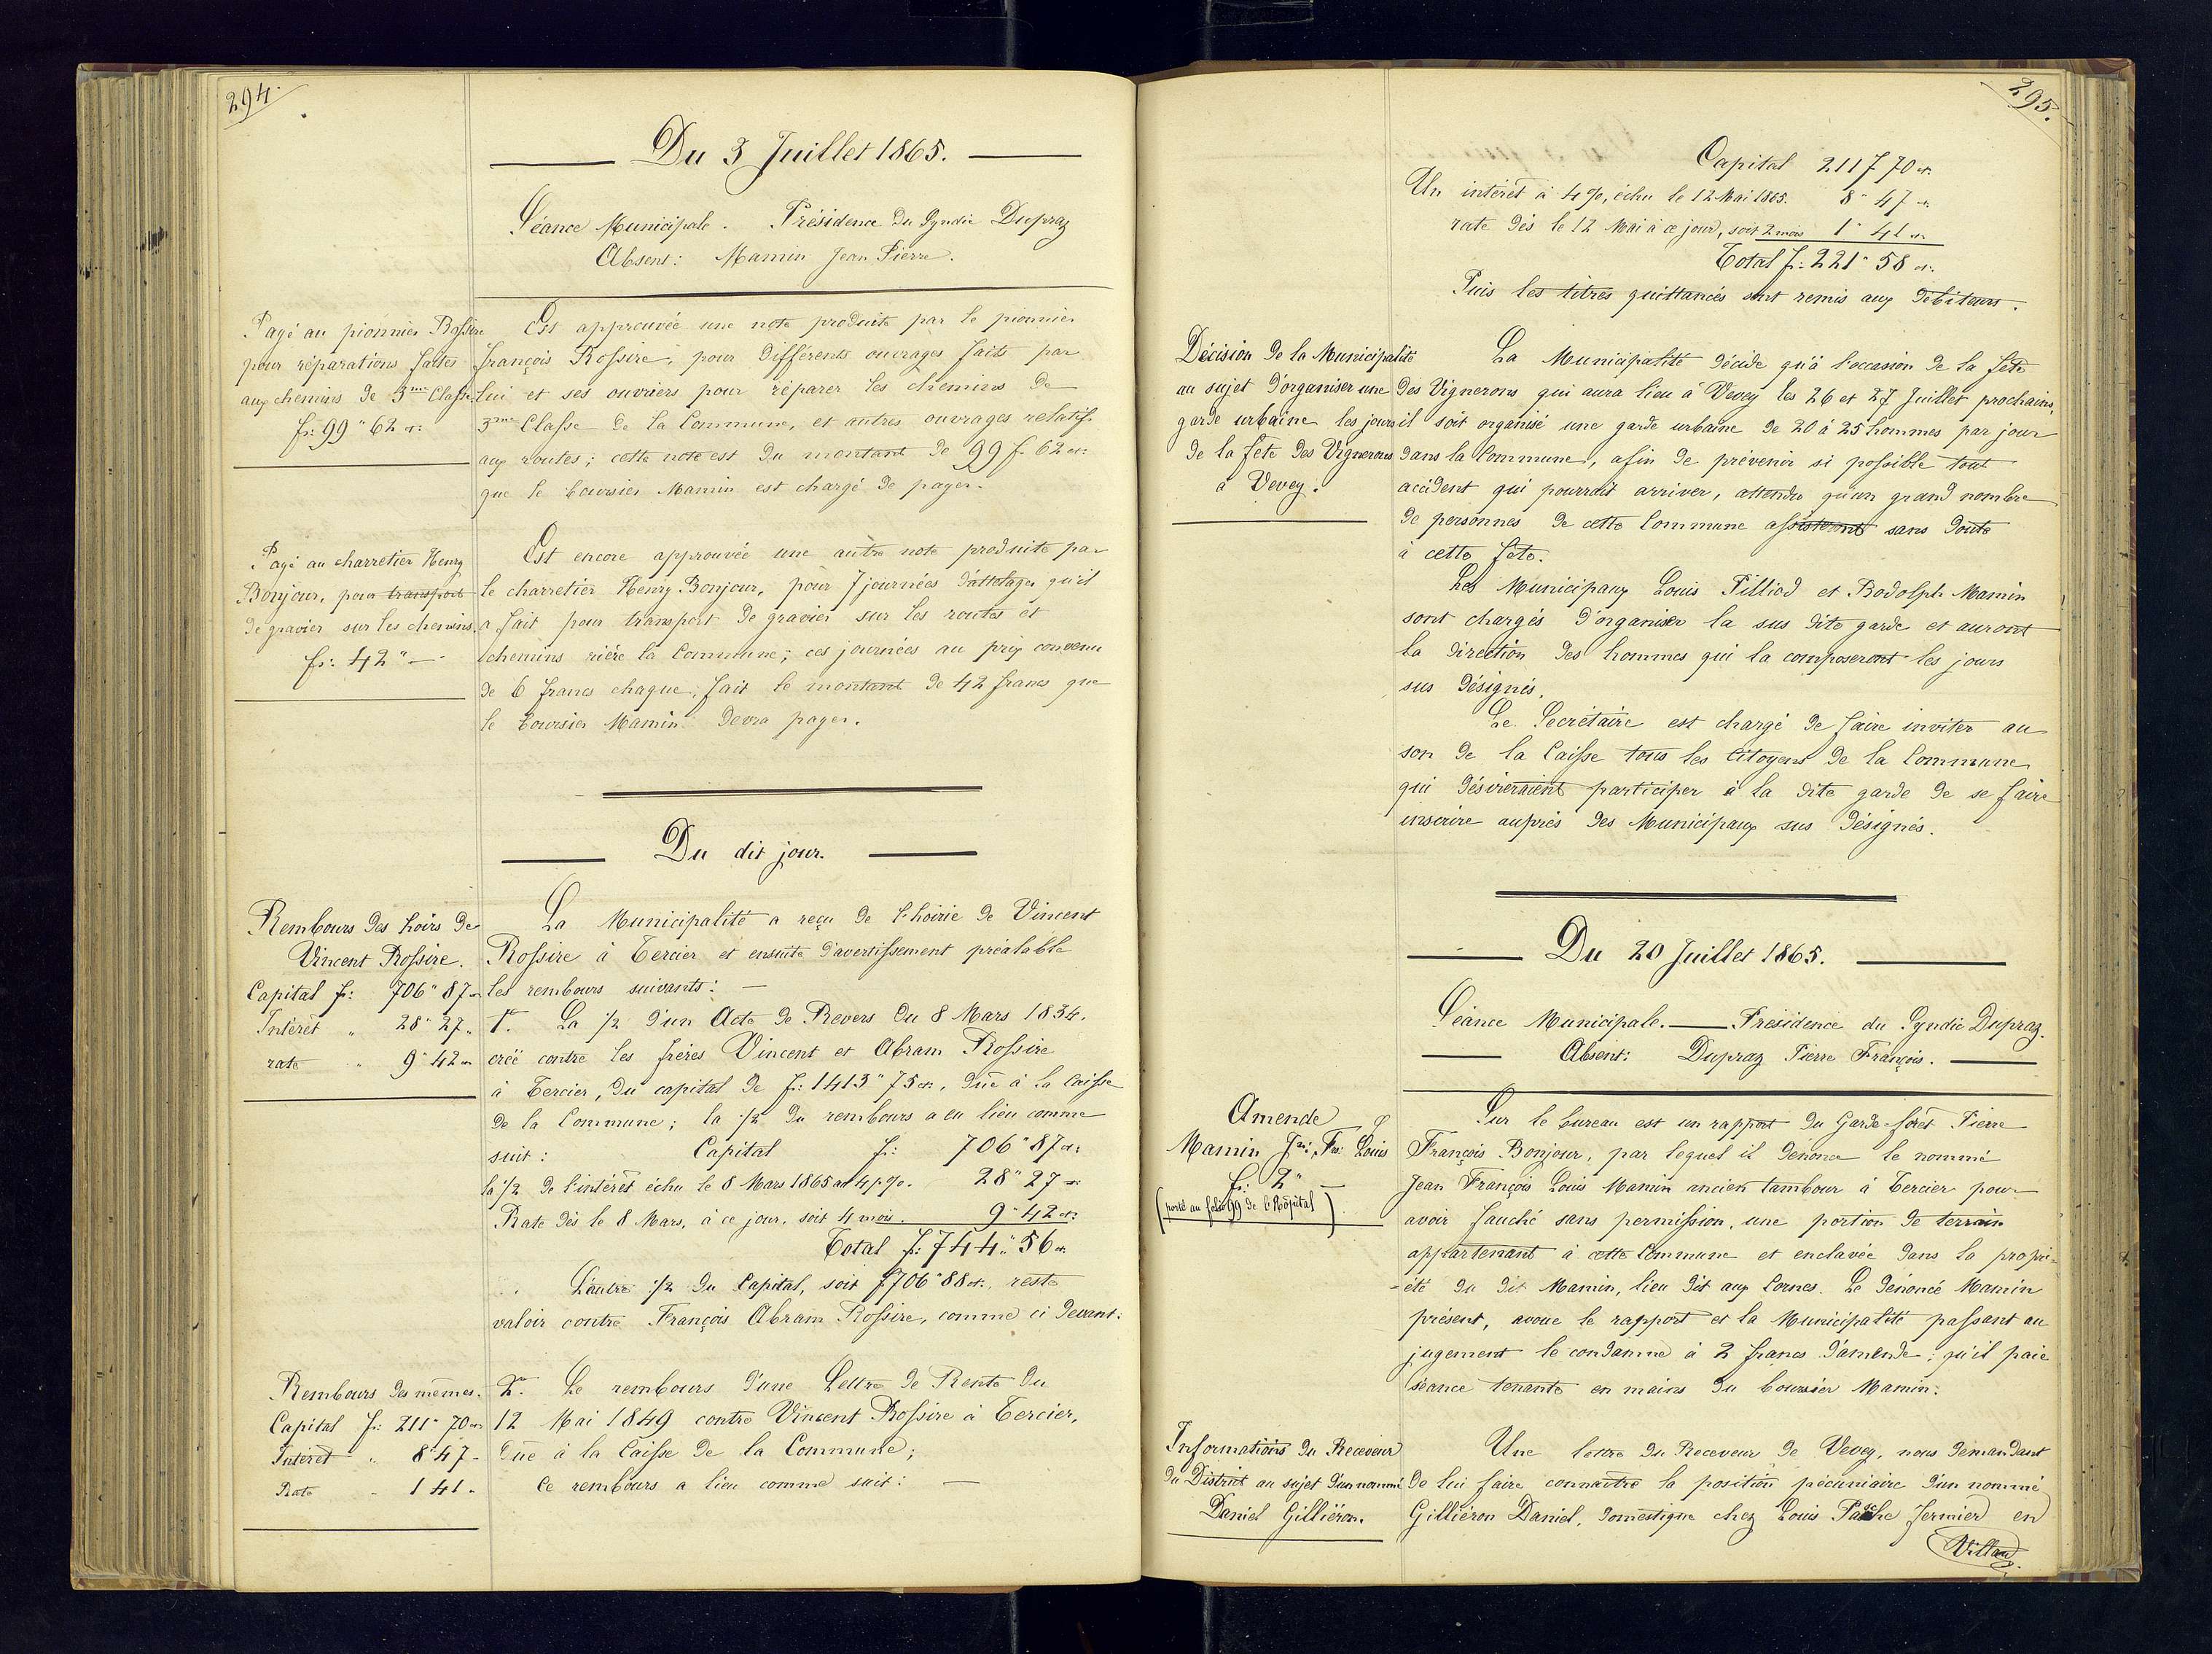 294.
Du 3 Juillet 1865.
Séance Municipale. Présidence du Syndic Dupraz
Absent: Mamin Jean Pierre.
Payé au pionnier Rossire
pour réparations faites
aux chemins de 3me Classe
fr: 99" 62 ct:
Est approuvée une note produite par le pionnier
françois Rossire, pour différents ouvrages faits par
lui et ses ouvriers pour réparer les chemins de
3me Classe de la Commune, et autres ouvrages relatifs
aux routes; cette note est du montant de 99 f. 62 ct:
que le boursier Mamin est chargé de payer.
Payé au charretier Henry
Bonjour, pour transport
de gravier sur les chemins.
fr: 42" —
Est encore approuvée une autre note produite par
le charretier Henry Bonjour, pour 7 journées d'attelages qu'il
a fait pour transport de gravier sur les routes et
chemins rière la Commune; ces journées au prix convenu
de 6 francs chaque, fait le montant de 42 francs que
le boursier Mamin devra payer.
Du dit jour.
Rembours des hoirs de
Vincent Rossire.
Capital fr: 706" 87 ct
Intérêt " 28" 27 "
rate " 9" 42 ct
La Municipalité a reçu de l'hoirie de Vincent
Rossire à Tercier et ensuite d'avertissement préalable
les rembours suivants: —
1°. La 1/2 d'un Acte de Revers du 8 Mars 1834.
créé contre les frères Vincent et Abram Rossire
à Tercier, du capital de fr: 1413" 75 ct, dûe à la Caisse
de la Commune; la 1/2 du rembours a eu lieu comme
suit: Capital fr: 706" 87 ct:
la 1/2 de l'intérêt échu le 8 Mars 1865 au 4 p %. 28" 27 ct
Rate dès le 8 Mars, à ce jour, soit 4 mois. 9" 42 ct:
Total fr: 744" 56 ct.
L'autre 1/2 du Capital, soit f 706" 88 ct. reste
valoir contre François Abram Rossire, comme ci devant:
Rembours des mêmes.
Capital fr: 211" 70 ct
Intérêt " 8" 47 "
Rate " 1 41 "
2°. Le rembours d'une Lettre de Rente du
12 Mai 1849 contre Vincent Rossire à Tercier,
dûe à la Caisse de la Commune;
Ce rembours a lieu comme suit: —
295.
Capital 211 f 70 ct.
Un intérêt à 4 %, échu le 12 Mai 1865. 8" 47 ct
rate dès le 12 Mai à ce jour, soit 2 mois 1" 41 ct
Total fr: 221" 58 ct.
Puis les titres quittancés sont remis aux débiteurs.
Décision de la Municipalité
au sujet d'organiser une
garde urbaine les jours
de la fête des Vignerons
à Vevey.
La Municipalité décide qu'à l'occasion de la fête
des Vignerons qui aura lieu à Vevey les 26 et 27 Juillet prochains,
il soit organisé une garde urbaine de 20 à 25 hommes par jour
dans la Commune, afin de prévenir si possible tout
accident qui pourrait arriver, attendu qu'un grand nombre
de personnes de cette Commune assisteront sans doute
à cette fête.
Les Municipaux Louis Pilliod et Rodolph Mamin
sont chargés d'organiser la sus dite garde et auront
la direction des hommes qui la composeront les jours
sus désignés.
Le Secrétaire est chargé de faire inviter au
son de la Caisse tous les Citoyens de la Commune
qui désireraient participer à la dite garde de se faire
inscrire auprès des Municipaux sus désignés.
Du 20 Juillet 1865.
Séance Municipale. — Présidence du Syndic Dupraz.
Absent: Dupraz Pierre François.
Amende
Mamin Jn: Fs: Louis
fr: 2" —
(porté au folio 99 de l'Hôpital)
Sur le bureau est un rapport du Garde-forêt Pierre
François Bonjour, par lequel il dénonce le nommé
Jean François Louis Mamin ancien tambour à Tercier pour
avoir fauché sans permission, une portion de terrain
appartenant à cette Commune et enclavée dans la propri-
-été du dit Mamin, lieu dit aux Cornes. Le dénoncé Mamin
présent, avoue le rapport et la Municipalité passant au
jugement le condamne à 2 francs d'amende; qu'il paie
séance tenante en mains du boursier Mamin.
Informations du Receveur
du District au sujet d'un nommé
Daniel Gilliéron.
Une lettre du Receveur de Vevey, nous demandant
de lui faire connaître la position pécuniaire d'un nommé
Gilliéron Daniel, domestique chez Louis Pasche fermier en
Villard.